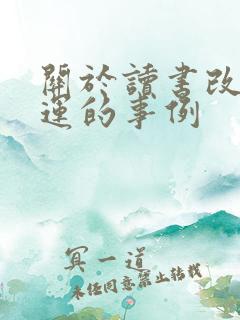 關於讀書改
運的事例
冥一道
未经同意禁止转载